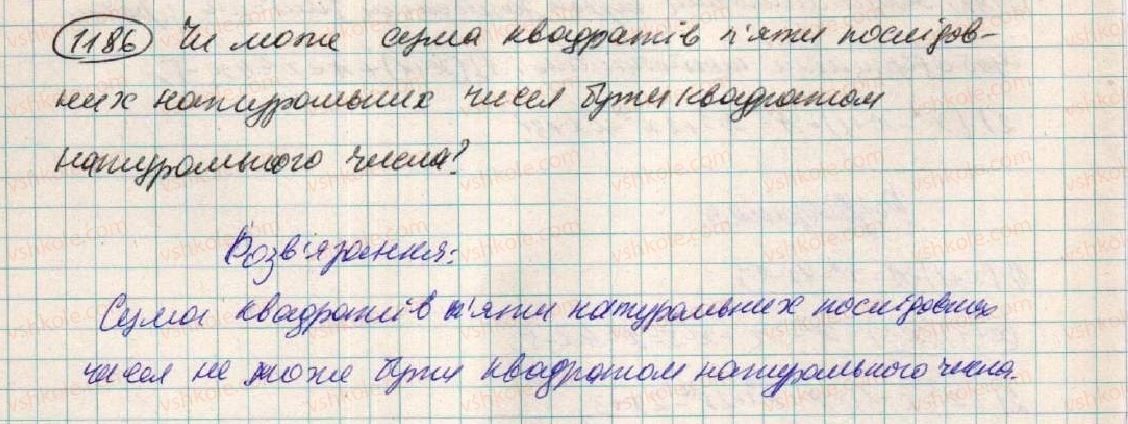 1186 Чи може сума квадратів п'яти послідов-
них натуральних чисел бути квадратом
натурального числа?
Розв'язання:
Сума квадратів п'яти натуральних послідовних
чисел не може бути квадратом натурального числа.